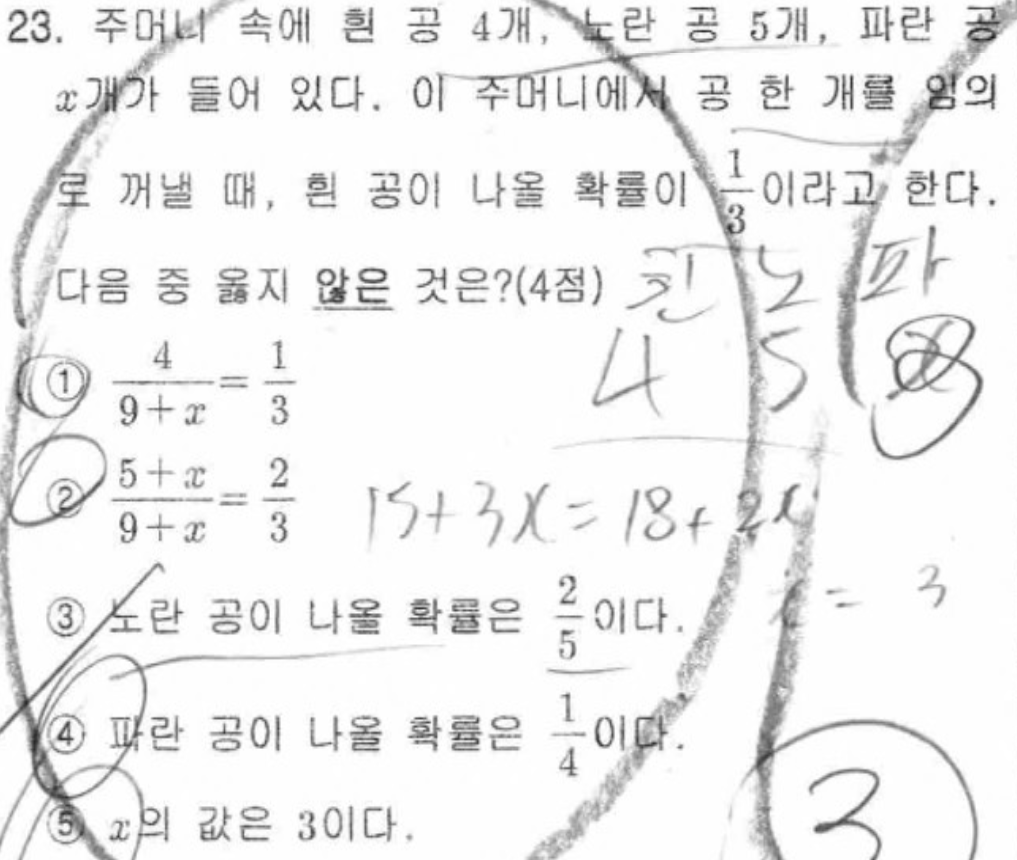 23. 주머니 속에 흰 공 4개, 노란 공 5개, 파란 공
x개가 들어 있다. 이 주머니에서 공 한 개를 임의
로 꺼낼 때, 흰 공이 나올 확률이 1/3이라고 한다.
다음 중 옳지 않은 것은?(4점)
흰 노 파
4 5
① 4/(9+x) = 1/3
② (5+x)/(9+x) = 2/3
15+3x=18+2x
x = 3
③ 노란 공이 나올 확률은 2/5이다.
④ 파란 공이 나올 확률은 1/4이다.
⑤ x의 값은 3이다.
3